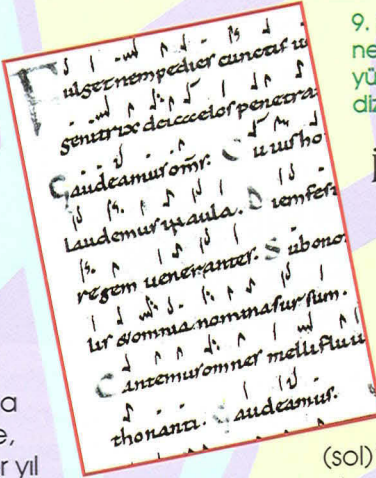 9.
ne
yü
diz
Fulget nempe dies cunctis
genitrix dei celos penetra
Gaudeamus om̅s. Cuius ho
Laudemus in aula. Diem fes
regem uenerantes. Sub ono
lus & omnia nomina sursum.
Cantemus omnes mellifluu
thonanti. Gaudeamus.
a
e,
r yıl
(sol)